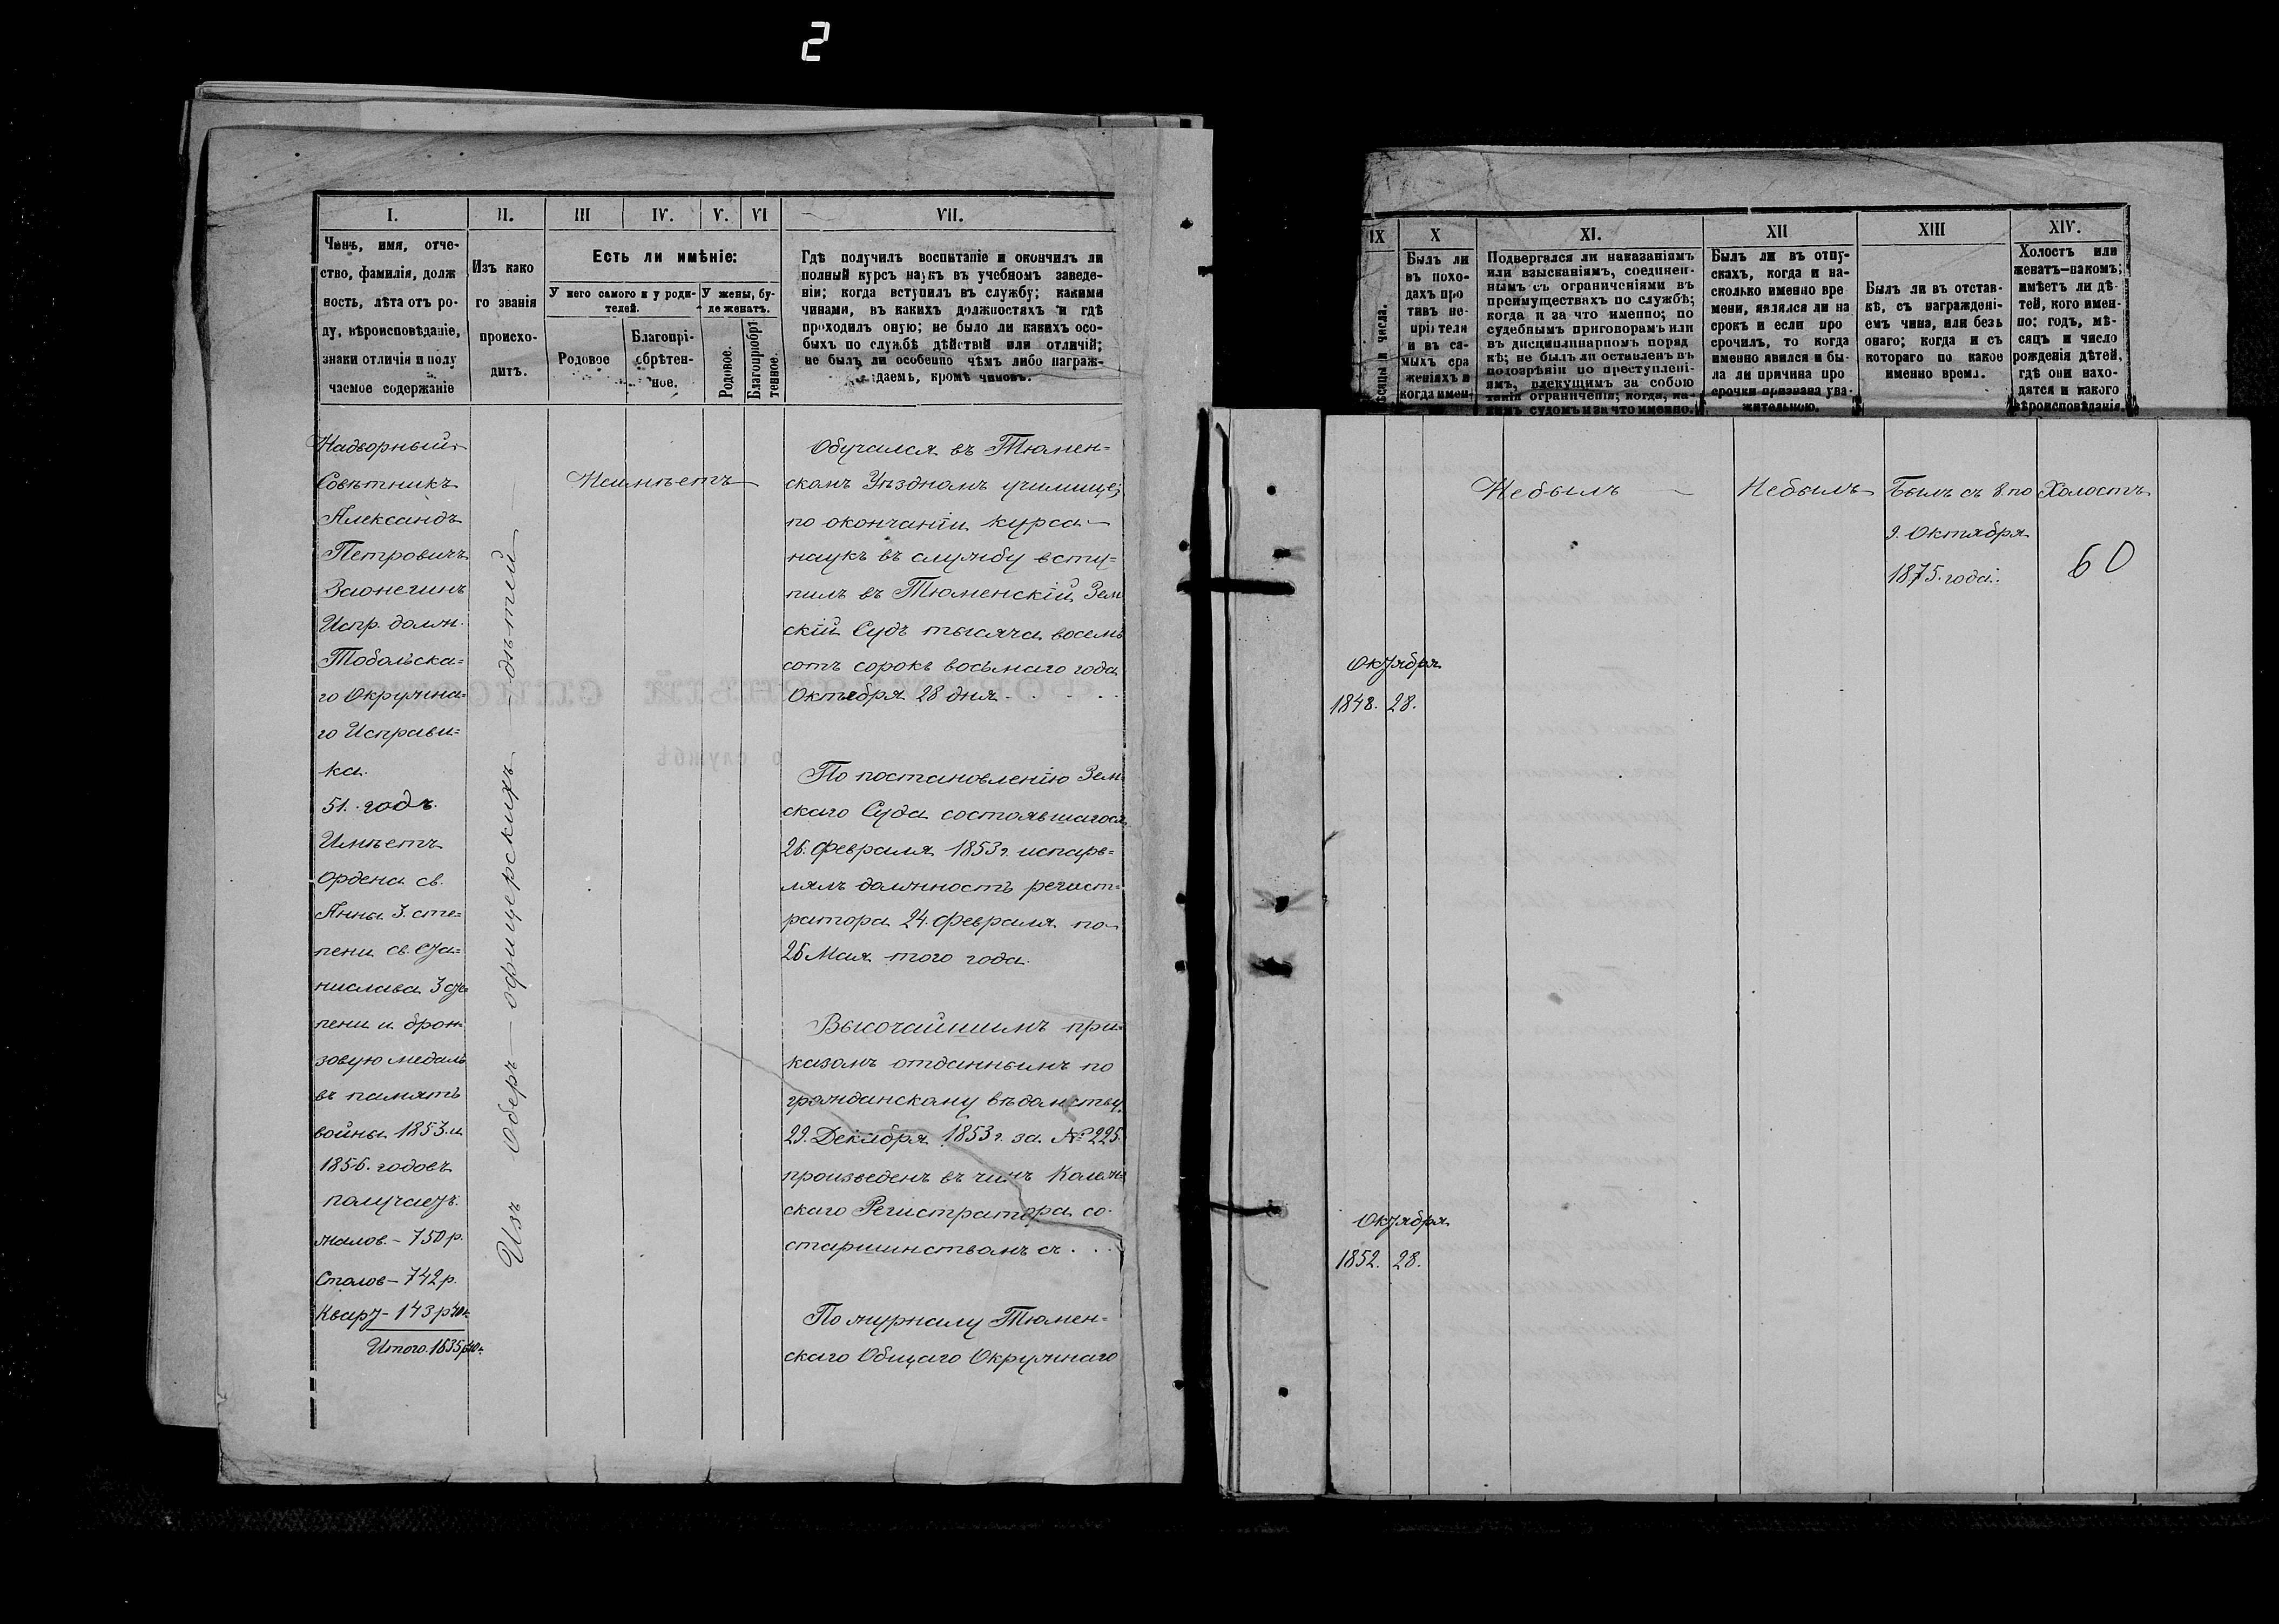 2
I.
Чинъ, имя, отче-
ство, фамилія, долж
ность, лѣта отъ ро-
ду, вѣроисповѣданіе,
знаки отличія и полу
чаемое содержаніе
II.
Изъ како
го званія
происхо-
дитъ.
III
IV.
V.
VI
Есть ли имѣніе:
У него самого и у роди-
телей.
У жены, бу-
де женатъ.
Родовое
Благопрі-
обрѣтен-
ное.
Родовое.
Благопріобрѣ
тенное.
VII.
Гдѣ получилъ воспитаніе и окончилъ ли
полный курсъ наукъ въ учебномъ заведе-
ніи; когда вступилъ въ службу; какими
чинами, въ какихъ должностяхъ и гдѣ
проходилъ оную; не было ли какихъ осо-
быхъ по службѣ дѣйствій или отличій;
не былъ ли особенно чѣмъ либо награж-
даемъ, кромѣ чиновъ.
Надворный
Совѣтникъ
Александъ
Петровичъ
Заонегинъ
Испр. долж.
Тобольска-
го Окружна-
го Исправи-
ка.
51. годъ.
Имѣетъ
Ордена св.
Анны 3. сте-
пени св. Ста-
нислава 3 сте-
пени и брон-
зовую медаль
въ память
войны 1853. и
1856. годовъ
получаетъ.
жалов. - 750 р.
Столов - 742 р.
Кварт - 143 р 40 к.
Итого. 1635 р 40 к.
Изъ Оберъ - офицерскихъ - дѣтей
Неимѣетъ
Обучался въ Тюмен-
скомъ Уѣздномъ училищѣ,
по окончаніи курса
наукъ въ службу всту-
пилъ въ Тюменскій Зем
скій Судъ тысяча восемь
сотъ сорокъ восьмаго года
Октября 28 дня . . . .
По постановленію Зем-
скаго Суда состоявшагося
26. Февраля 1853 г. исправ-
лялъ должность регист-
ратора 24. Февраля по
26 Мая того года.
Высочайшимъ при-
казомъ отданнымъ по
гражданскому вѣдомству
29. Декабря 1853 г. за № 225
произведенъ въ чинъ Коллеж
скаго Регистратора со
старшинствомъ съ . . .
По журналу Тюмен-
скаго Общаго Окружнаго
IX
сяцы и числа.
X
Былъ ли
въ похо-
дахъ про
тивъ не-
пріятеля
и въ са-
мыхъ сра
женіяхъ и
когда имен
XI.
Подвергался ли наказаніямъ
или взысканіямъ, соединен-
нымъ съ ограниченіями въ
преимуществахъ по службѣ;
когда и за что именно; по
судебнымъ приговорамъ или
въ дисциплинарномъ поряд
кѣ; не былъ ли оставленъ въ
подозрѣніи по преступлені-
ямъ, влекущимъ за собою
такія ограниченія; когда, ка-
кимъ судомъ и за что именно.
XII
Былъ ли въ отпу-
скахъ, когда и на-
сколько именно вре
мени, являлся ли на
срокъ и если про
срочилъ, то когда
именно явился и бы-
ла ли причина про
срочки признана ува-
жительною.
XIII
Былъ ли въ отстав-
кѣ, съ награждені-
емъ чина, или безъ
онаго; когда и съ
котораго по какое
именно время.
XIV.
Холостъ или
женатъ-накомъ;
имѣетъ ли дѣ-
тей, кого имен-
но; годъ, мѣ-
сяцъ и число
рожденія дѣтей,
гдѣ они нахо-
дятся и какого
вѣроисповѣданія.
Небылъ
Небылъ
Былъ съ 8. по
9. Октября
1875. года.
Холостъ
60
Октября
1848. 28.
Октября
1852. 28.